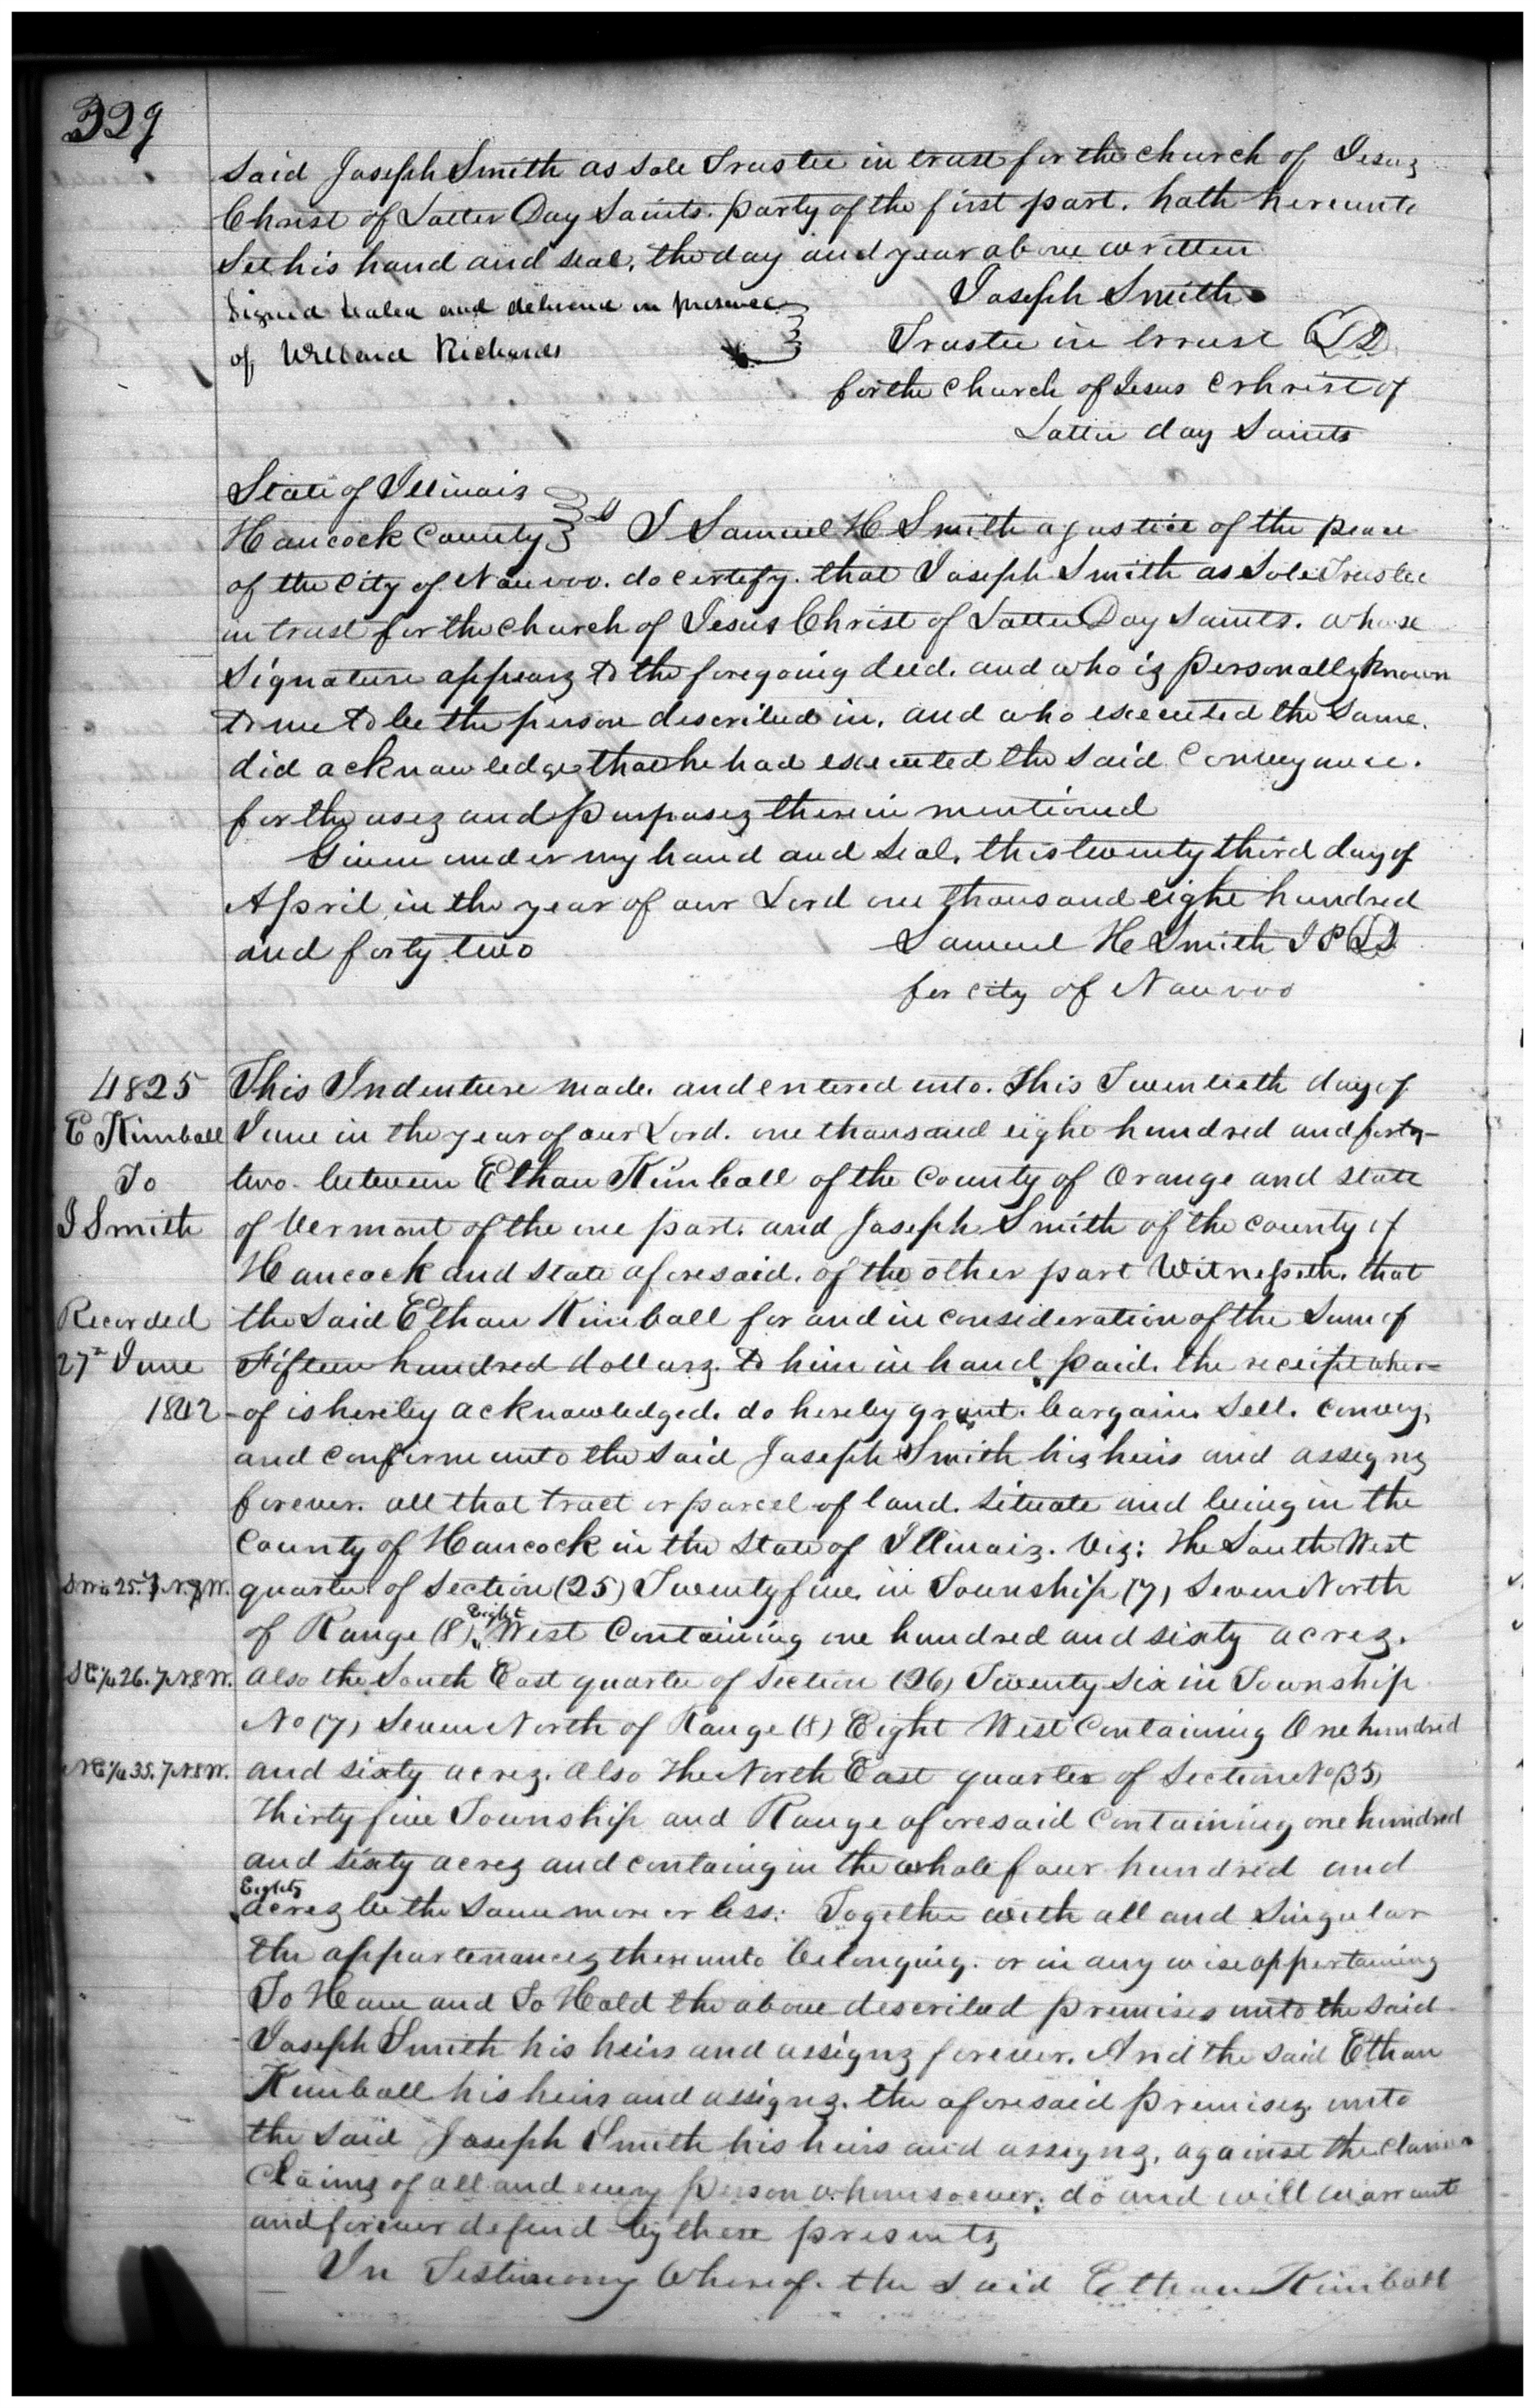 329
said Joseph Smith as sole Trustee in trust for the church of Jesus
Christ of Latter Day Saints. party of the first part. hath hereunto
Set his hand and seal, the day and year above written
Signed Sealed and delivered in presence
of Willard Richards
Joseph Smith
Trustee in trust LS
for the church of Jesus Crhrist of
Latter day Saints
State of Illinois
Hancock County ss I Samuel H Smith a justice of the peace
of the City of Nauvoo. do certify. that Joseph Smith as Sole Trustee
in trust for the church of Jesus Christ of Latter Day Saints. whose
Signature appears to the foregoing deed. and who is personally known
to me to be the person described in. and who executed the same.
did acknowledge that he had executed the said Conveyance.
for the uses and purposes therein mentioned
Given under my hand and Seal. this twenty third day of
April in the year of our Lord one thousand eight hundred
and forty two
Samuel H Smith J P LS
for City of Nauvoo
4825
E Kimball
To
J Smith
Recorded
27th June
1842
This Indenture made. and entered into. this Twentieth day of
June in the year of our Lord. one thousand eight hundred and forty-
two. between Ethan Kimball of the County of Orange and state
of Vermont of the one part. and Joseph Smith of the county of
Hancock and State aforesaid. of the other part Witnesseth. that
the said Ethan Kimball for and in consideration of the Sum of
Fifteen hundred dollars. to him in hand paid. the receipt wher=
-of is hereby acknowledged. do hereby grant. bargain. Sell. convey,
and confirm unto the said Joseph Smith his heirs and assigns
forever. all that tract or parcel of land. Situate and being in the
County of Hancock in the State of Illinois. Viz: The South West
SW¼ 25. 7 N. 8 W.
quarter of Section (25) Twenty five. in Township (7) Seven North
of Range (8) Eight West Containing one hundred and sixty acres.
SE¼ 26. 7 N 8 W.
also the South East quarter of Section (26) Twenty Six in Township
No (7) Seven North of Range (8) Eight West Containing One hundred
NE¼ 35. 7 N 8 W.
and sixty acres. Also The North East quarter of Section No (35)
Thirty five Township and Range aforesaid Containing one hundred
and sixty acres and containg in the whole four hundred and
Eighty
acres be the same more or less: Together with all and Singular
the appartenances thereunto belonging. or in any wise appertaining
To Have and To Hold the above described premises unto the said
Joseph Smith his heirs and assigns forever. And the said Ethan
Kimball his heirs and assigns. the aforesaid premises. unto
the said Joseph Smith his heirs and assigns, against the
Claims of all and every person whomsoever; do and will warrant
and forever defend by these presents
In Testimony Whereof. the said Ethan Kimball